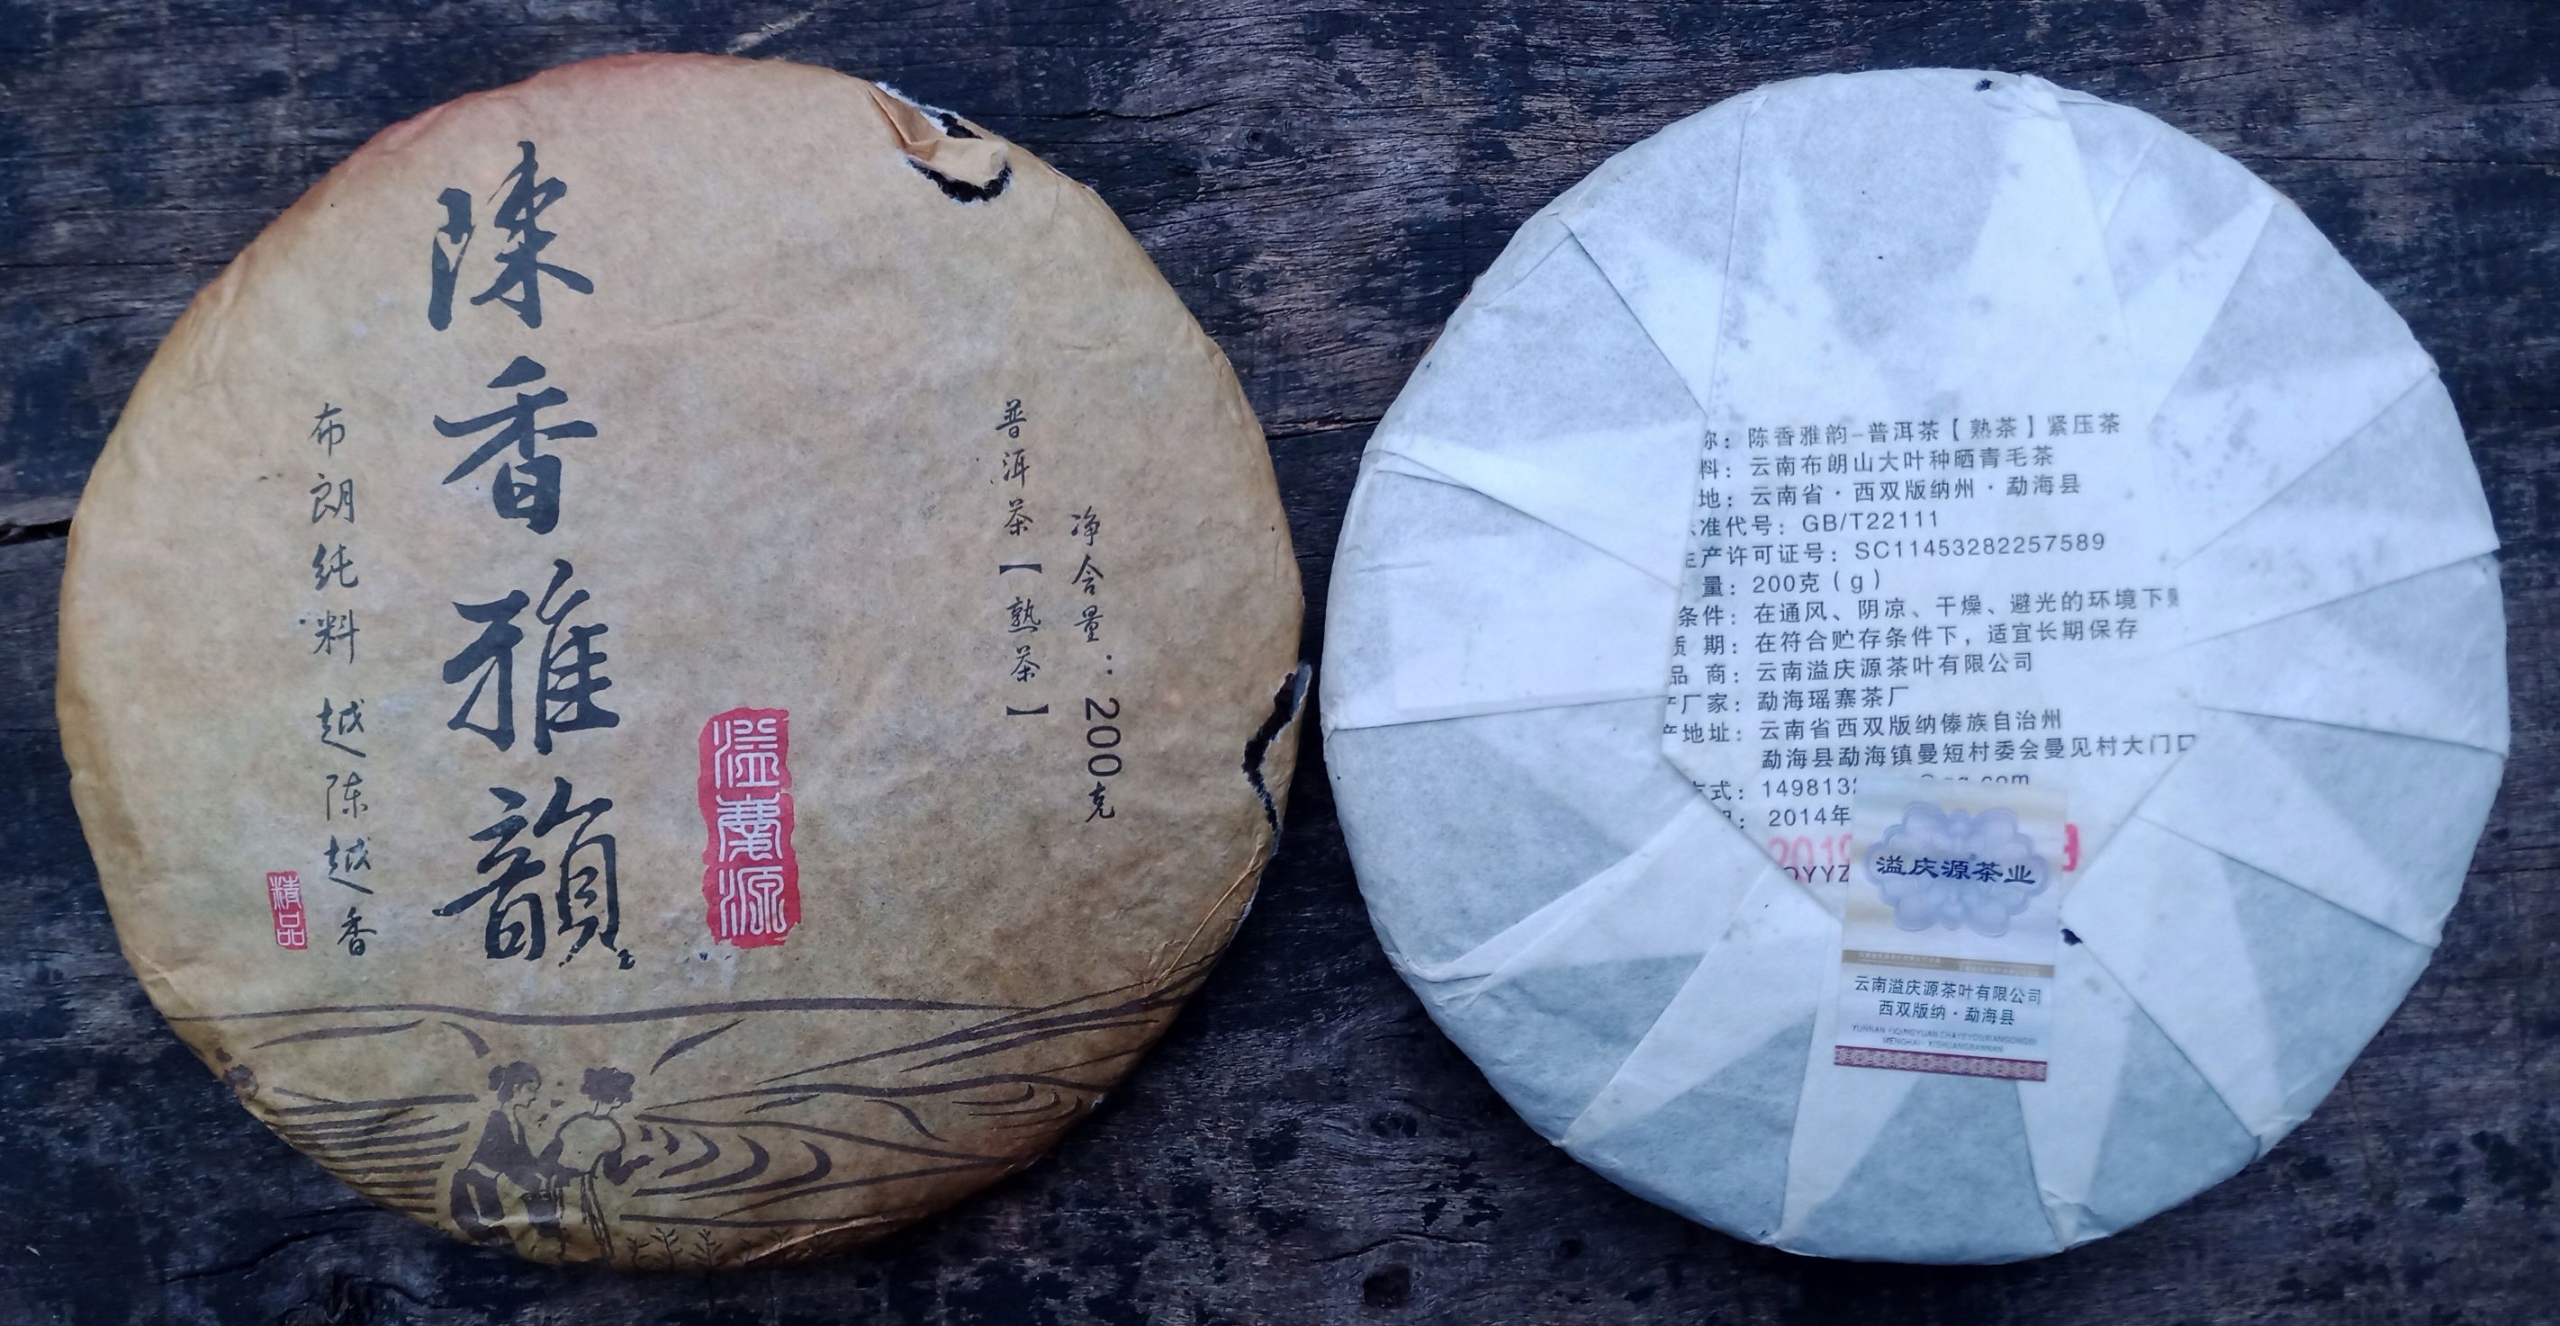 陳香雅韻
布朗纯料 越陈越香
精品
溢慶源
普洱茶【熟茶】
净含量：200克
称：陈香雅韵-普洱茶【熟茶】紧压茶
料：云南布朗山大叶种晒青毛茶
地：云南省·西双版纳州·勐海县
准代号：GB/T22111
产许可证号：SC11453282257589
量：200克（g）
条件：在通风、阴凉、干燥、避光的环境下
质 期：在符合贮存条件下，适宜长期保存
品 商：云南溢庆源茶叶有限公司
厂家：勐海瑶寨茶厂
地址：云南省西双版纳傣族自治州
勐海县勐海镇曼短村委会曼见村大门口
式：149813
2014年
2019
QYYZ
溢庆源茶业
云南溢庆源茶叶有限公司
西双版纳·勐海县
YUNNAN YIQINGYUAN CHAYEYOUXIANGONGSI
MENGHAI·XISHUANGBANNAN